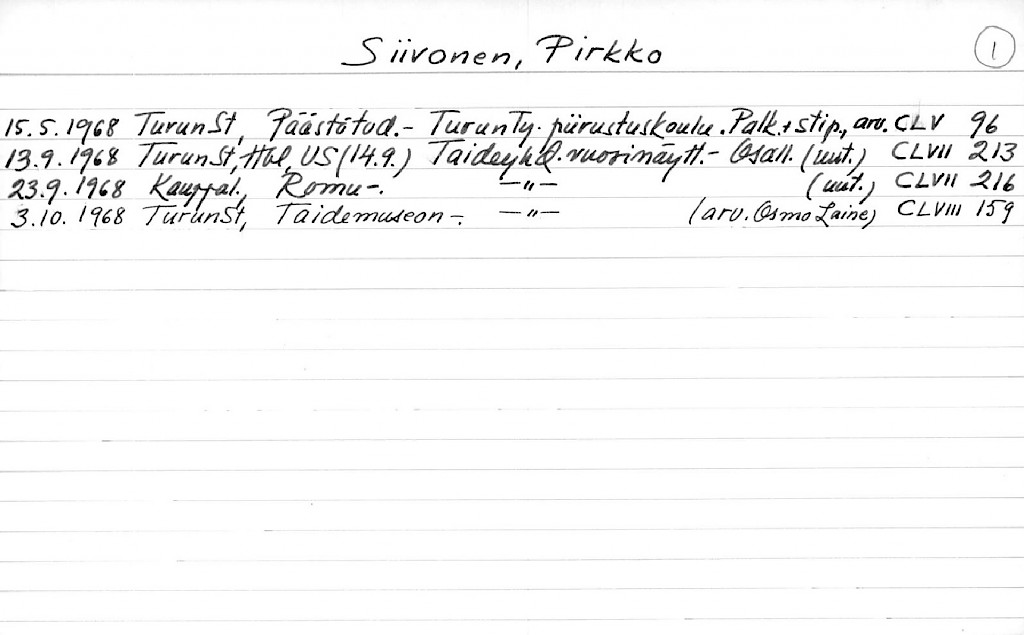 Siivonen, Pirkko 1
15.5.1968 TurunSt, Päästötod.- TurunTy. piirustuskoulu. Palk.+stip., arv. CLV 96
13.9.1968 TurunSt, Hbl, US (14.9.) Taideyhd. vuosinäytt.- Osall. (uut.) CLVII 213
23.9.1968 Kauppal., Romu-. —"— (uut.) CLVII 216
3.10.1968 TurunSt, Taidemuseon-. —"— (arv. Osmo Laine) CLVIII 159